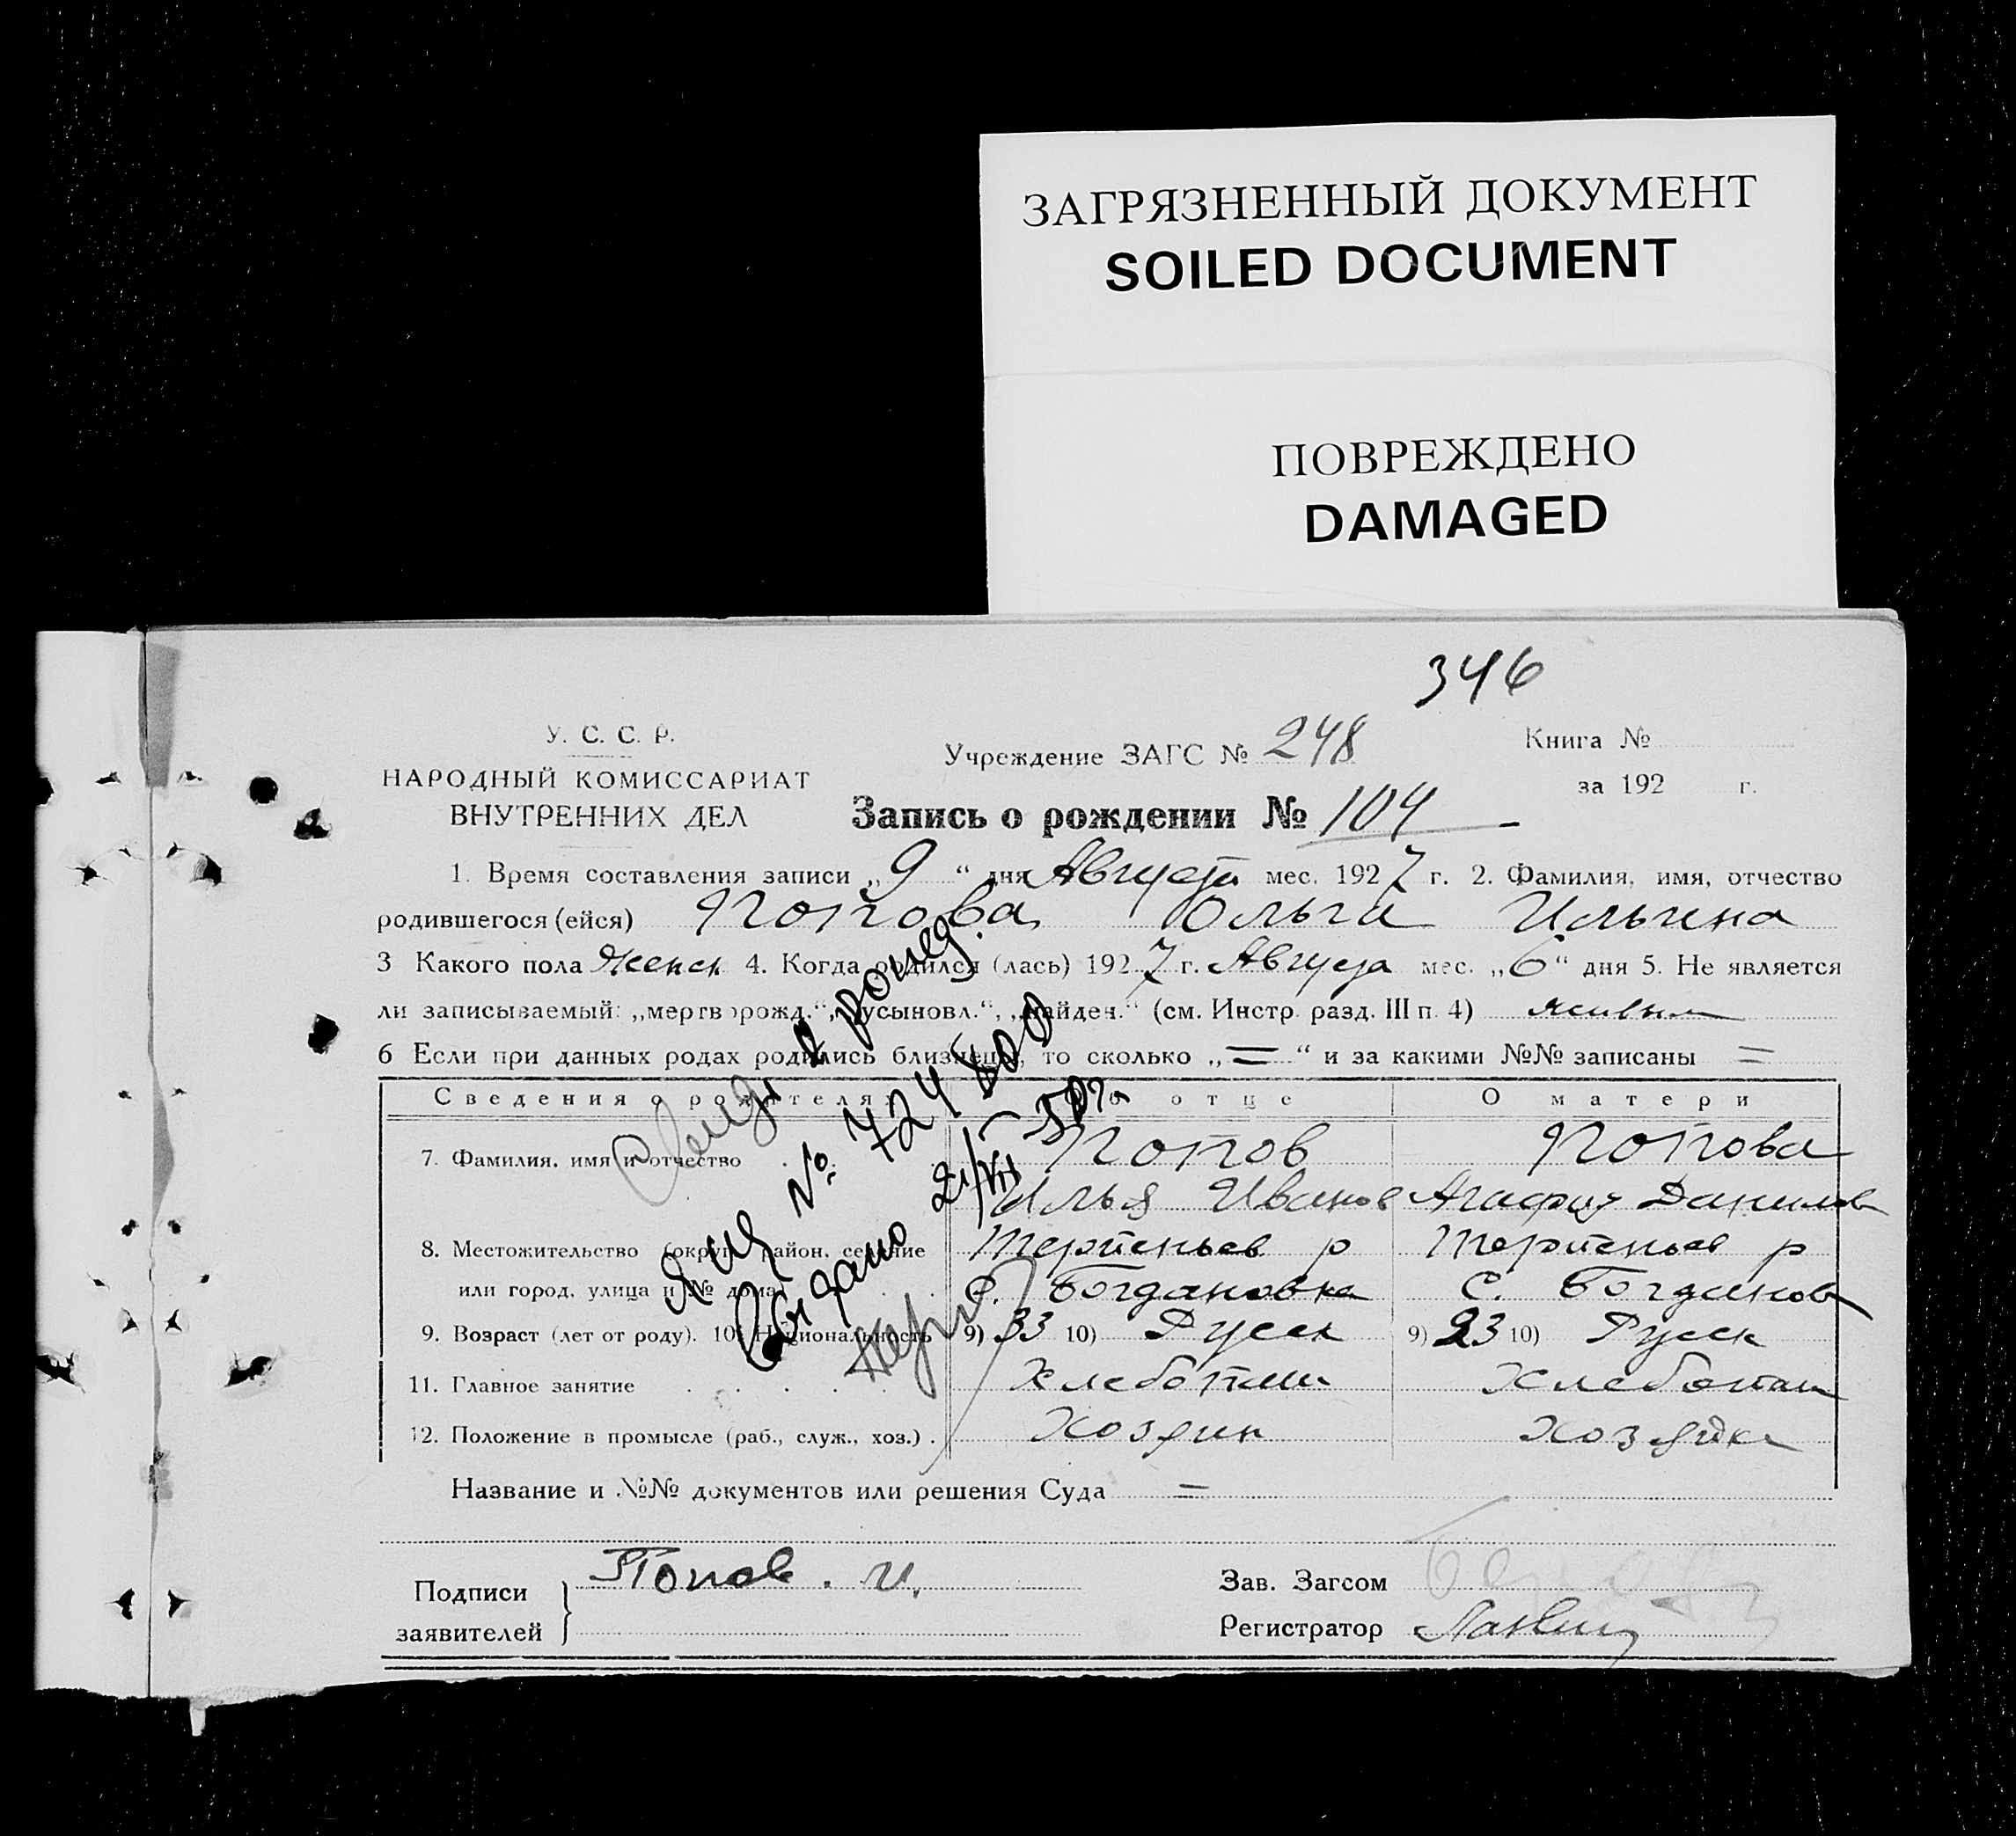 ЗАГРЯЗНЕННЫЙ ДОКУМЕНТ
SOILED DOCUMENT
ПОВРЕЖДЕНО
DAMAGED
346
У. С. С. Р.
НАРОДНЫЙ КОМИССАРИАТ
ВНУТРЕННИХ ДЕЛ
Учреждение ЗАГС № 248
Книга №
за 192 г.
Запись о рождении № 104
1. Время составления записи „9“ дня Августа мес. 1927 г. 2. Фамилия, имя, отчество
родившегося (ейся) Попова Ольга Ильина
3 Какого пола Женск 4. Когда родился (лась) 1927 г. Августа мес. „6“ дня 5. Не является
ли записываемый: „мертворожд.“, „усыновл.“, „найден.“ (см. Инстр. разд. III п. 4) живым
6 Если при данных родах родились близнецы, то сколько „=“ и за какими №№ записаны =
Сведения о родителях Об отце О матери
7. Фамилия, имя и отчество Попов Попова
Илья Иванов Агафия Данилов
8. Местожительство (округ, район, селение Терпеньев р Терпеньев р
или город, улица и № дома) С. Богдановка С. Богданов
9. Возраст (лет от роду). 10. Национальность 9) 33 10) Русск 9) 23 10) Русск
11. Главное занятие Хлебопаш Хлебопаш
12. Положение в промысле (раб., служ., хоз.) Хозяин Хозяйка
Название и №№ документов или решения Суда =
Подписи заявителей Попов. И.
Зав. Загсом
Регистратор
о рожд.
№ 724
Выдано 21/VII